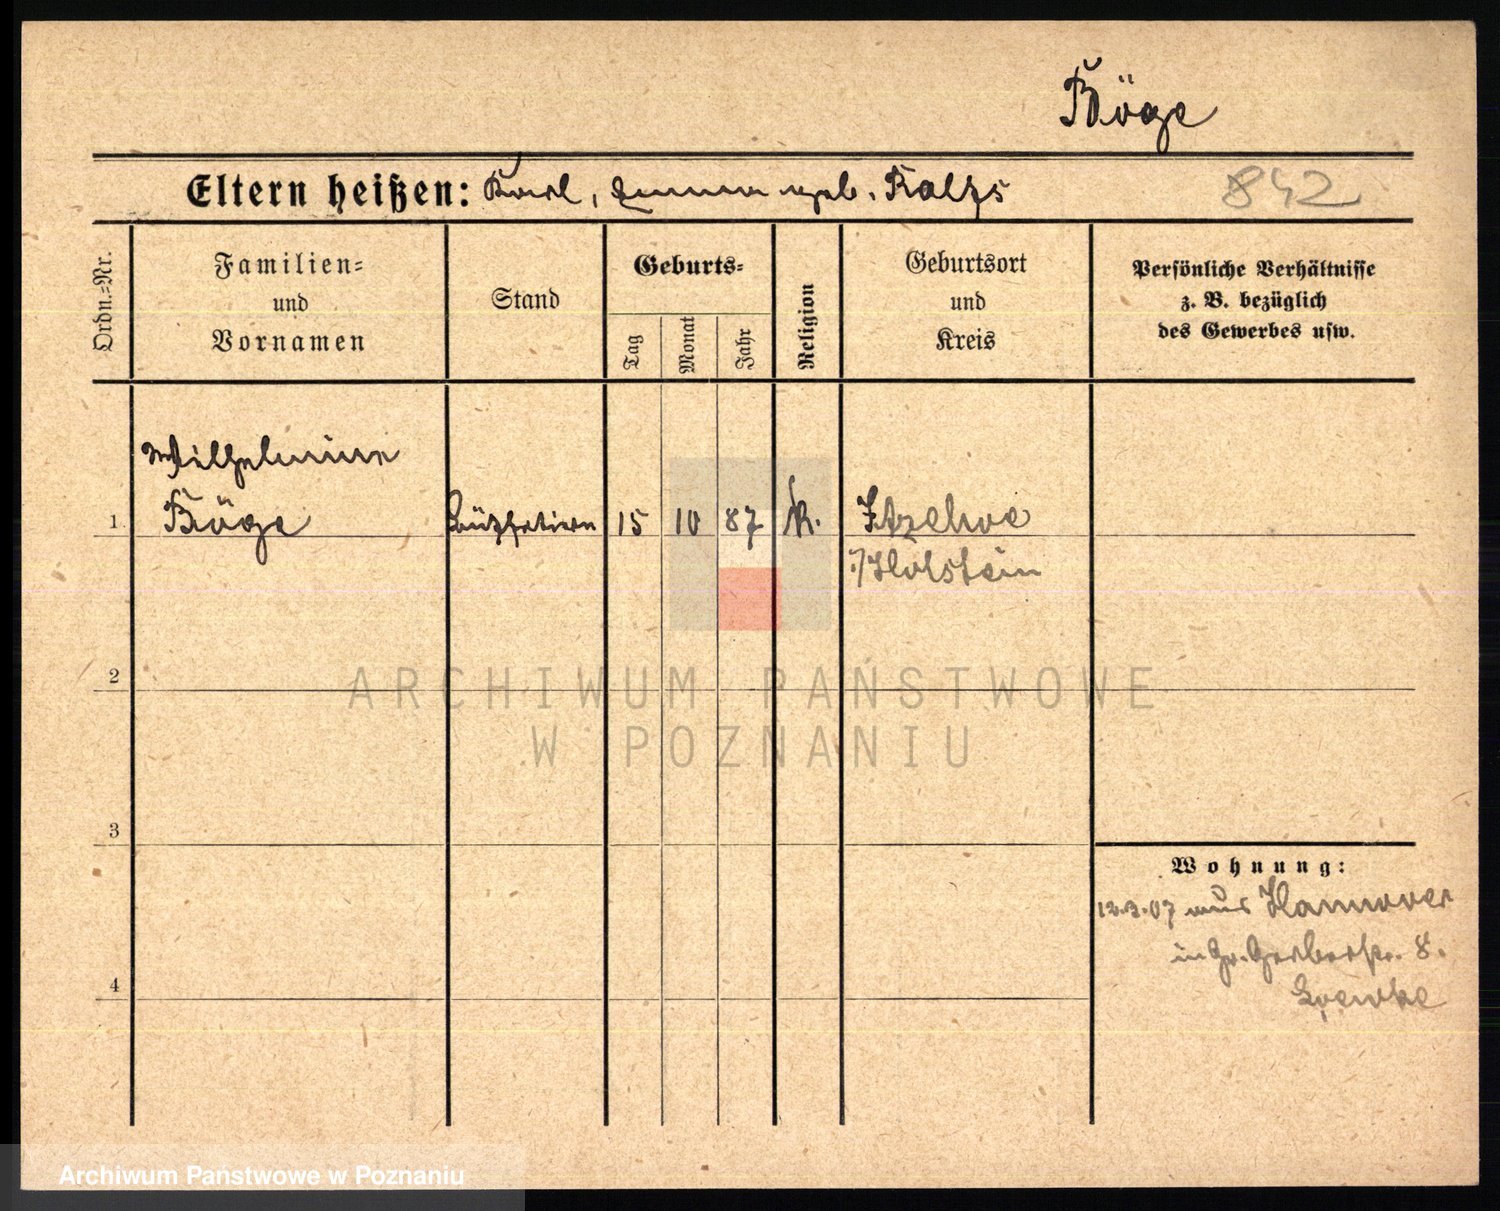 Böge
Eltern heißen: Karl, Emma geb. Rolfs
842
Ordn.=Nr.
Familien=
und
Vornamen
Stand
Geburts=
Tag
Monat
Jahr
Religion
Geburtsort
und
Kreis
Persönliche Verhältnisse
z. B. bezüglich
des Gewerbes usw.
Wilhelmine
1 Böge 15 10 87 k. Itzehoe
i/Holstein
2
ARCHIWUM PAŃSTWOWE
W POZNANIU
3
Wohnung:
12.3.07 aus Hannover
in Gr. Gerberstr. 8.
4
Archiwum Państwowe w Poznaniu